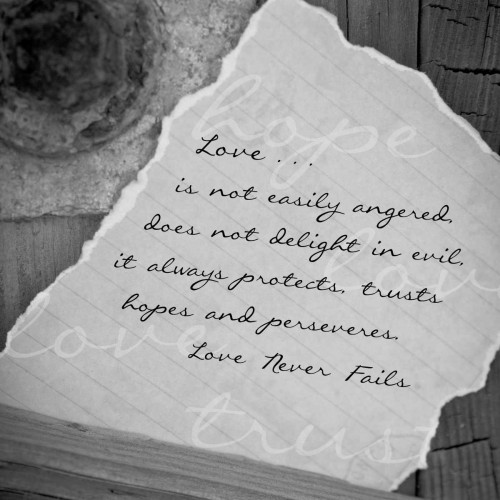 hope
Love . . .
is not easily angered,
does not delight in evil,
it always protects, trusts
hopes and perseveres.
Love Never Fails
love
trust